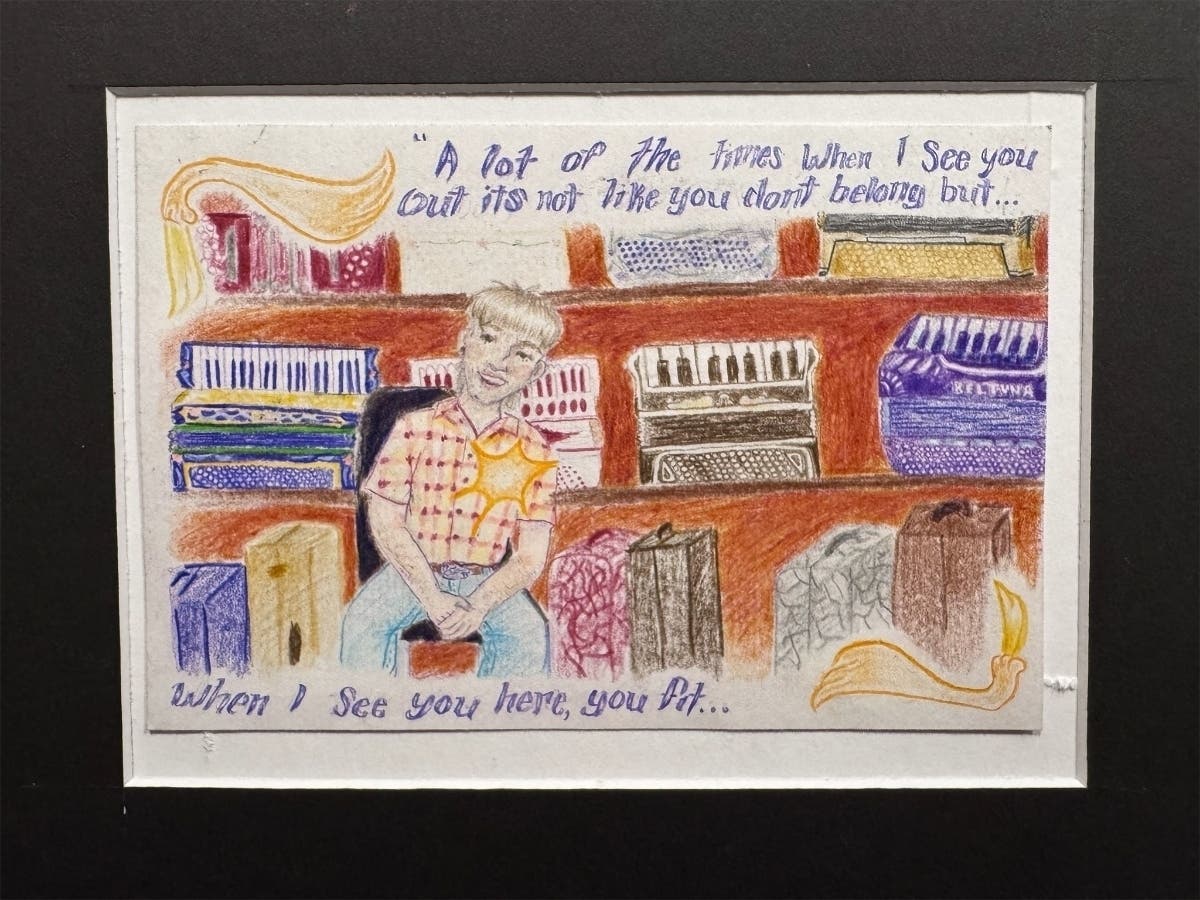 "A lot of the times When I See you
Out its not like you dont belong but...
BELTUNA
When I See you here, you fit...